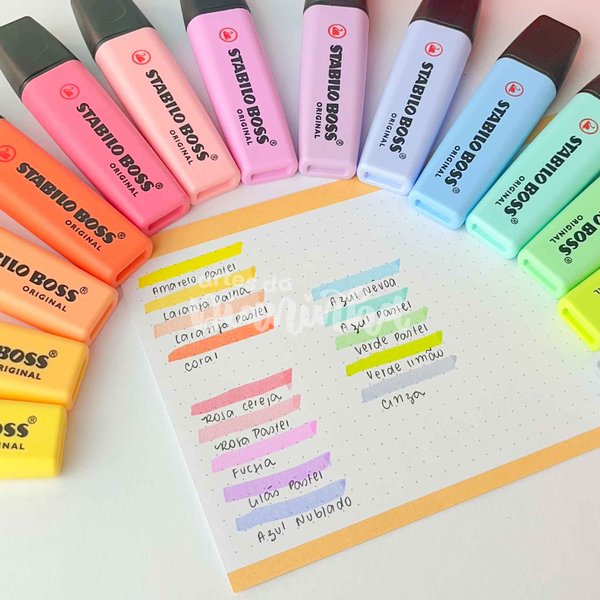 STABILO BOSS®
ORIGINAL
STABILO BOSS®
ORIGINAL
STABILO BOSS®
ORIGINAL
STABILO BOSS®
ORIGINAL
STABILO BOSS®
ORIGINAL
STABILO BOSS®
ORIGINAL
STABILO BOSS®
ORIGINAL
STABILO BOSS®
ORIGINAL
STABILO BOSS®
ORIGINAL
ORIGINAL
BOSS®
ORIGINAL
BOSS®
Amarelo Pastel
Laranja Palha
Laranja Pastel
Coral
Rosa Cereja
Rosa Pastel
Fucha
Lilás Pastel
Azul Nublado
Azul Névoa
Azul Pastel
Verde Pastel
Verde limão
Cinza
artes da